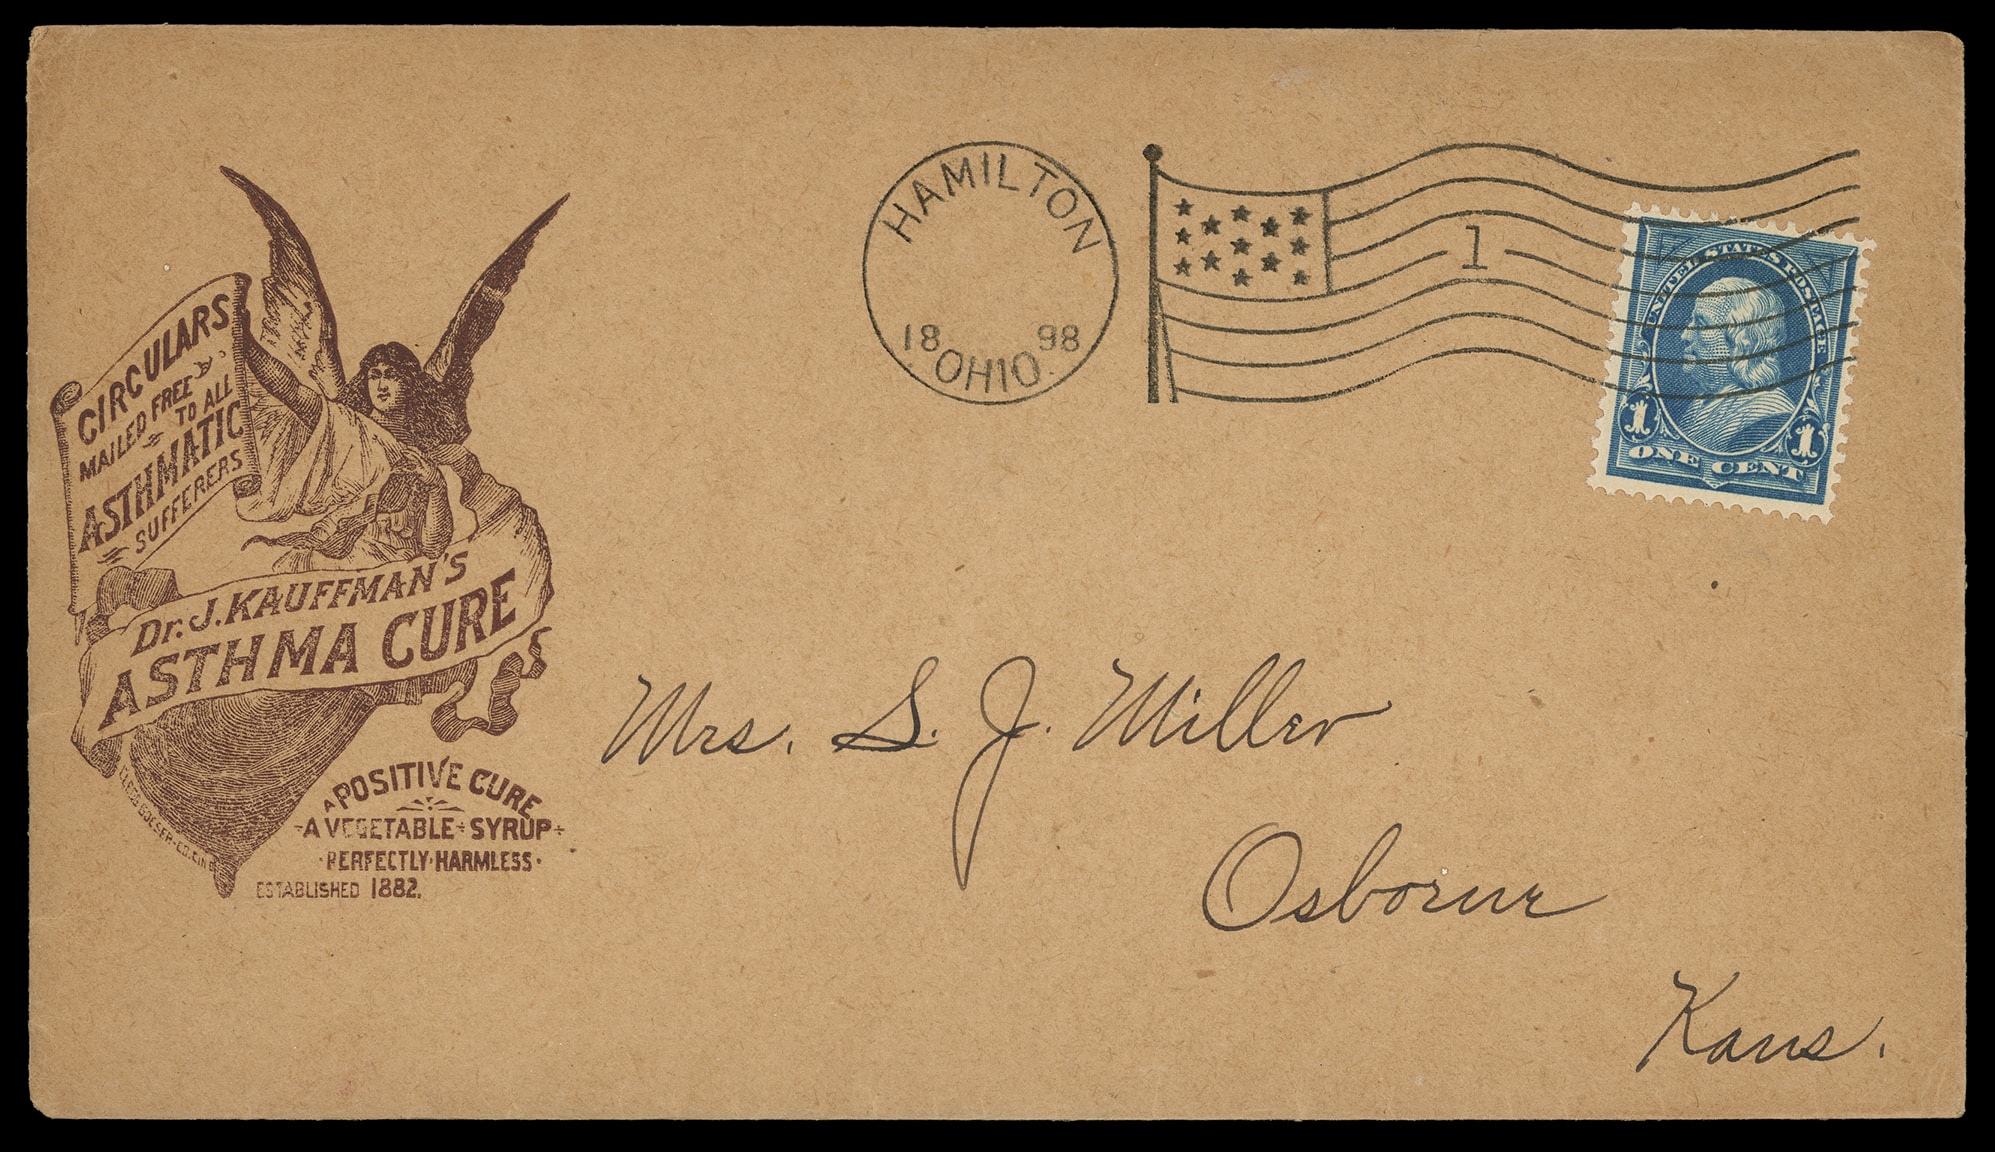 CIRCULARS
MAILED FREE
TO ALL
ASTHMATIC
SUFFERERS
Dr. J. KAUFFMAN'S
ASTHMA CURE
A POSITIVE CURE
A VEGETABLE SYRUP
PERFECTLY HARMLESS
ESTABLISHED 1882.
HAMILTON
18 98
OHIO.
1
UNITED STATES POSTAGE
1 1
ONE CENT
Mrs. S. J. Miller
Osborne
Kans.